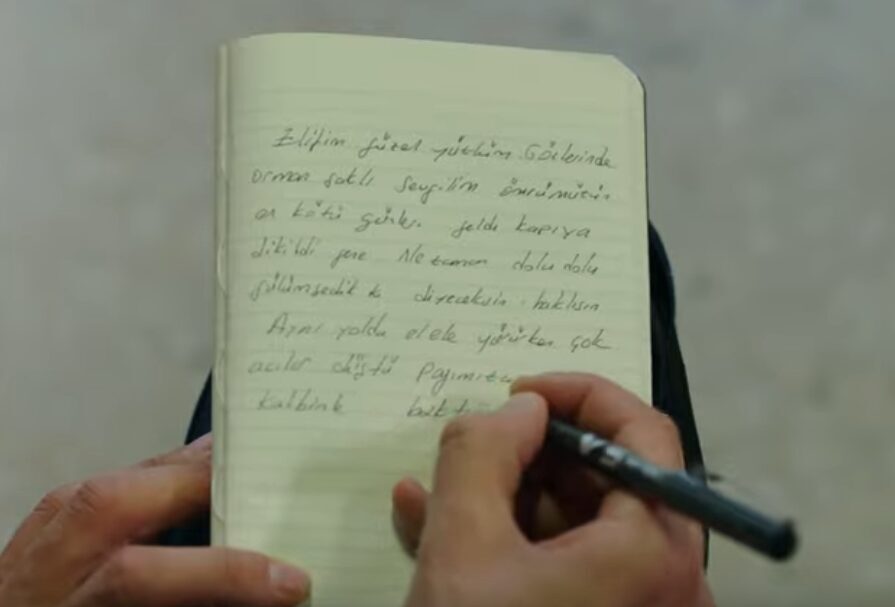 Elifim güzel yüzlüm. Gözlerinde
orman saklı sevgilim ömrümüzün
en kötü günleri geldi kapıya
dikildi yine Ne zaman dolu dolu
gülümsedik ki diyeceksin. haklısın
Aynı yolda elele yürürken çok
acılar düştü payımıza
Kalbink